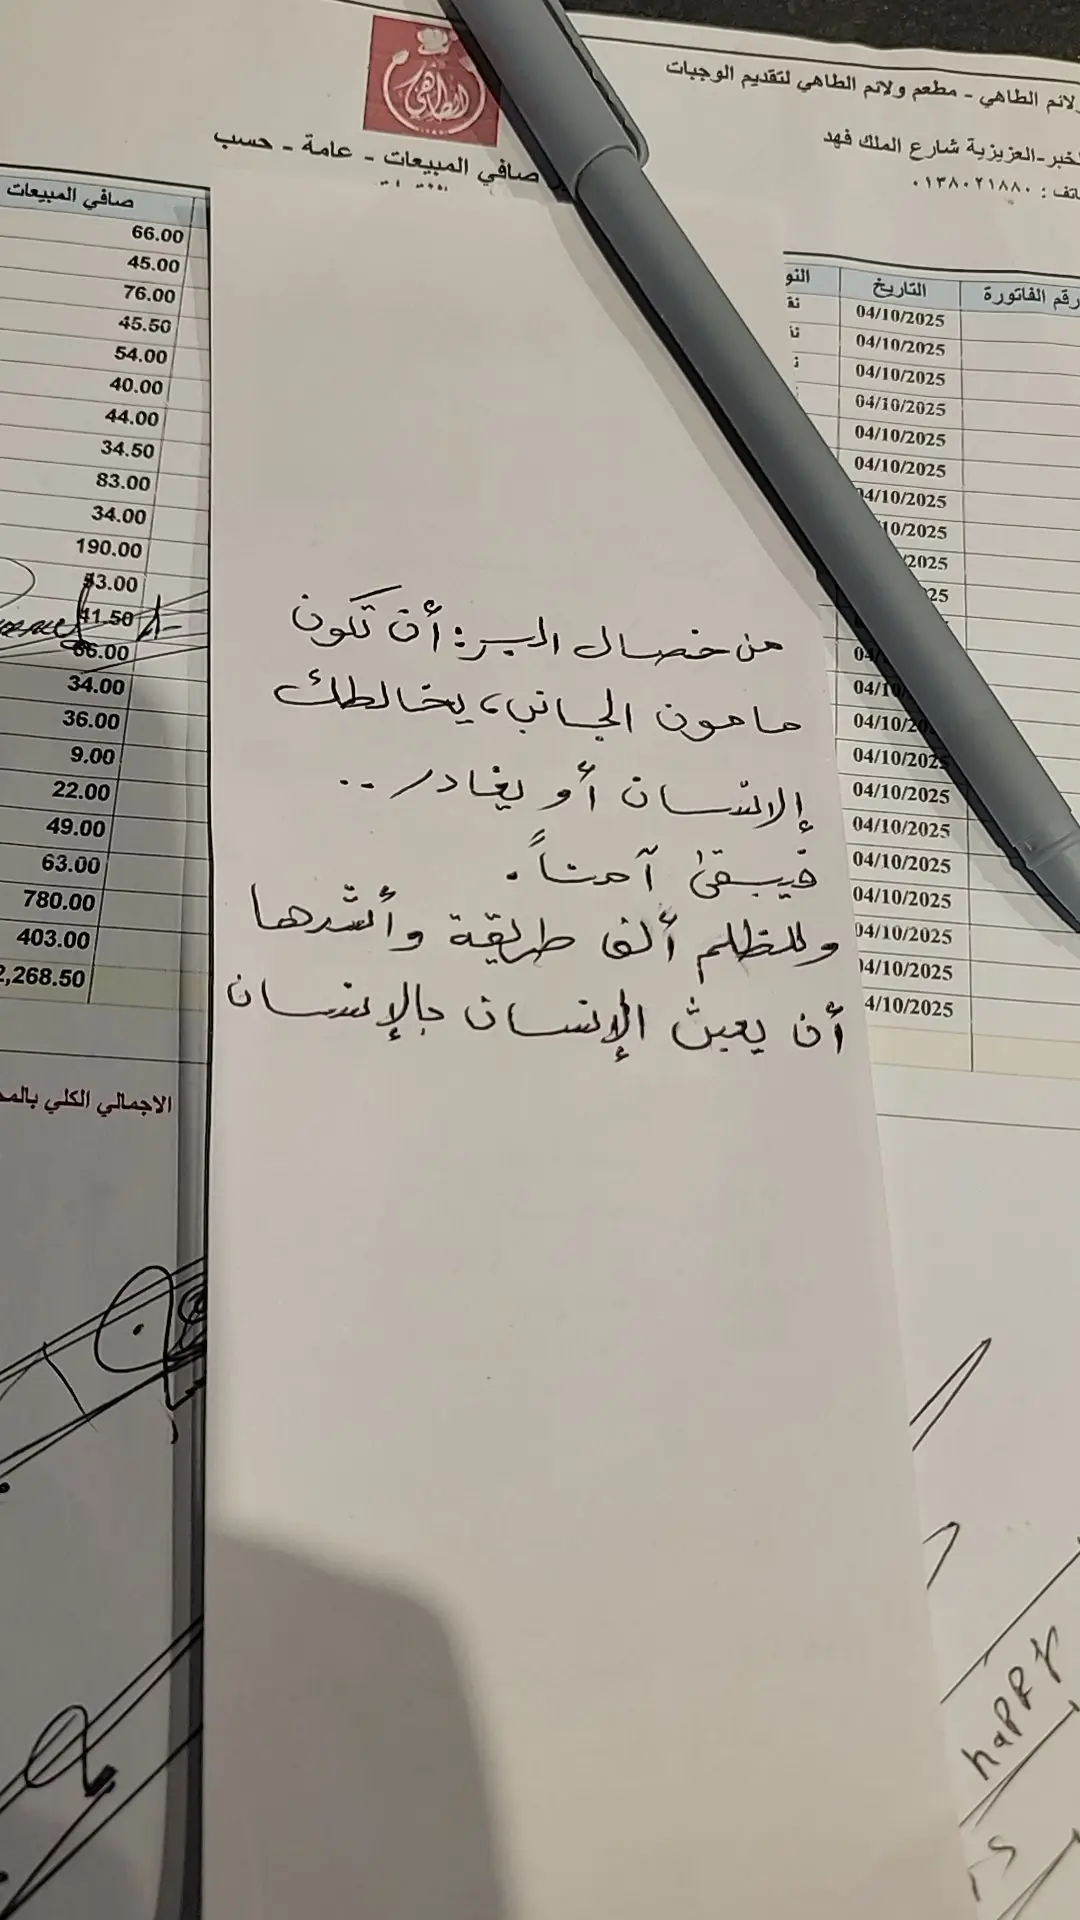 الطاهي
ولائم الطاهي - مطعم ولائم الطاهي لتقديم الوجبات
الخبر-العزيزية شارع الملك فهد
هاتف : ٠١٣٨٠٢١٨٨٠
صافي المبيعات - عامة - حسب
صافي المبيعات
66.00
45.00
76.00
45.50
54.00
40.00
44.00
34.50
83.00
34.00
190.00
53.00
41.50
66.00
34.00
36.00
9.00
22.00
49.00
63.00
780.00
403.00
2,268.50
الاجمالي الكلي
رقم الفاتورة التاريخ
04/10/2025
04/10/2025
04/10/2025
04/10/2025
04/10/2025
04/10/2025
04/10/2025
10/2025
2025
25
04/
04/10
04/10/20
04/10/2025
04/10/2025
04/10/2025
04/10/2025
04/10/2025
04/10/2025
04/10/2025
4/10/2025
من خصال البر: أن تكون
مأمون الجانب، يخالطك
الإنسان أو يغادر ..
فيبقى آمناً.
وللظلم ألف طريقة وأشدها
أن يعبث الإنسان بالإنسان
happy